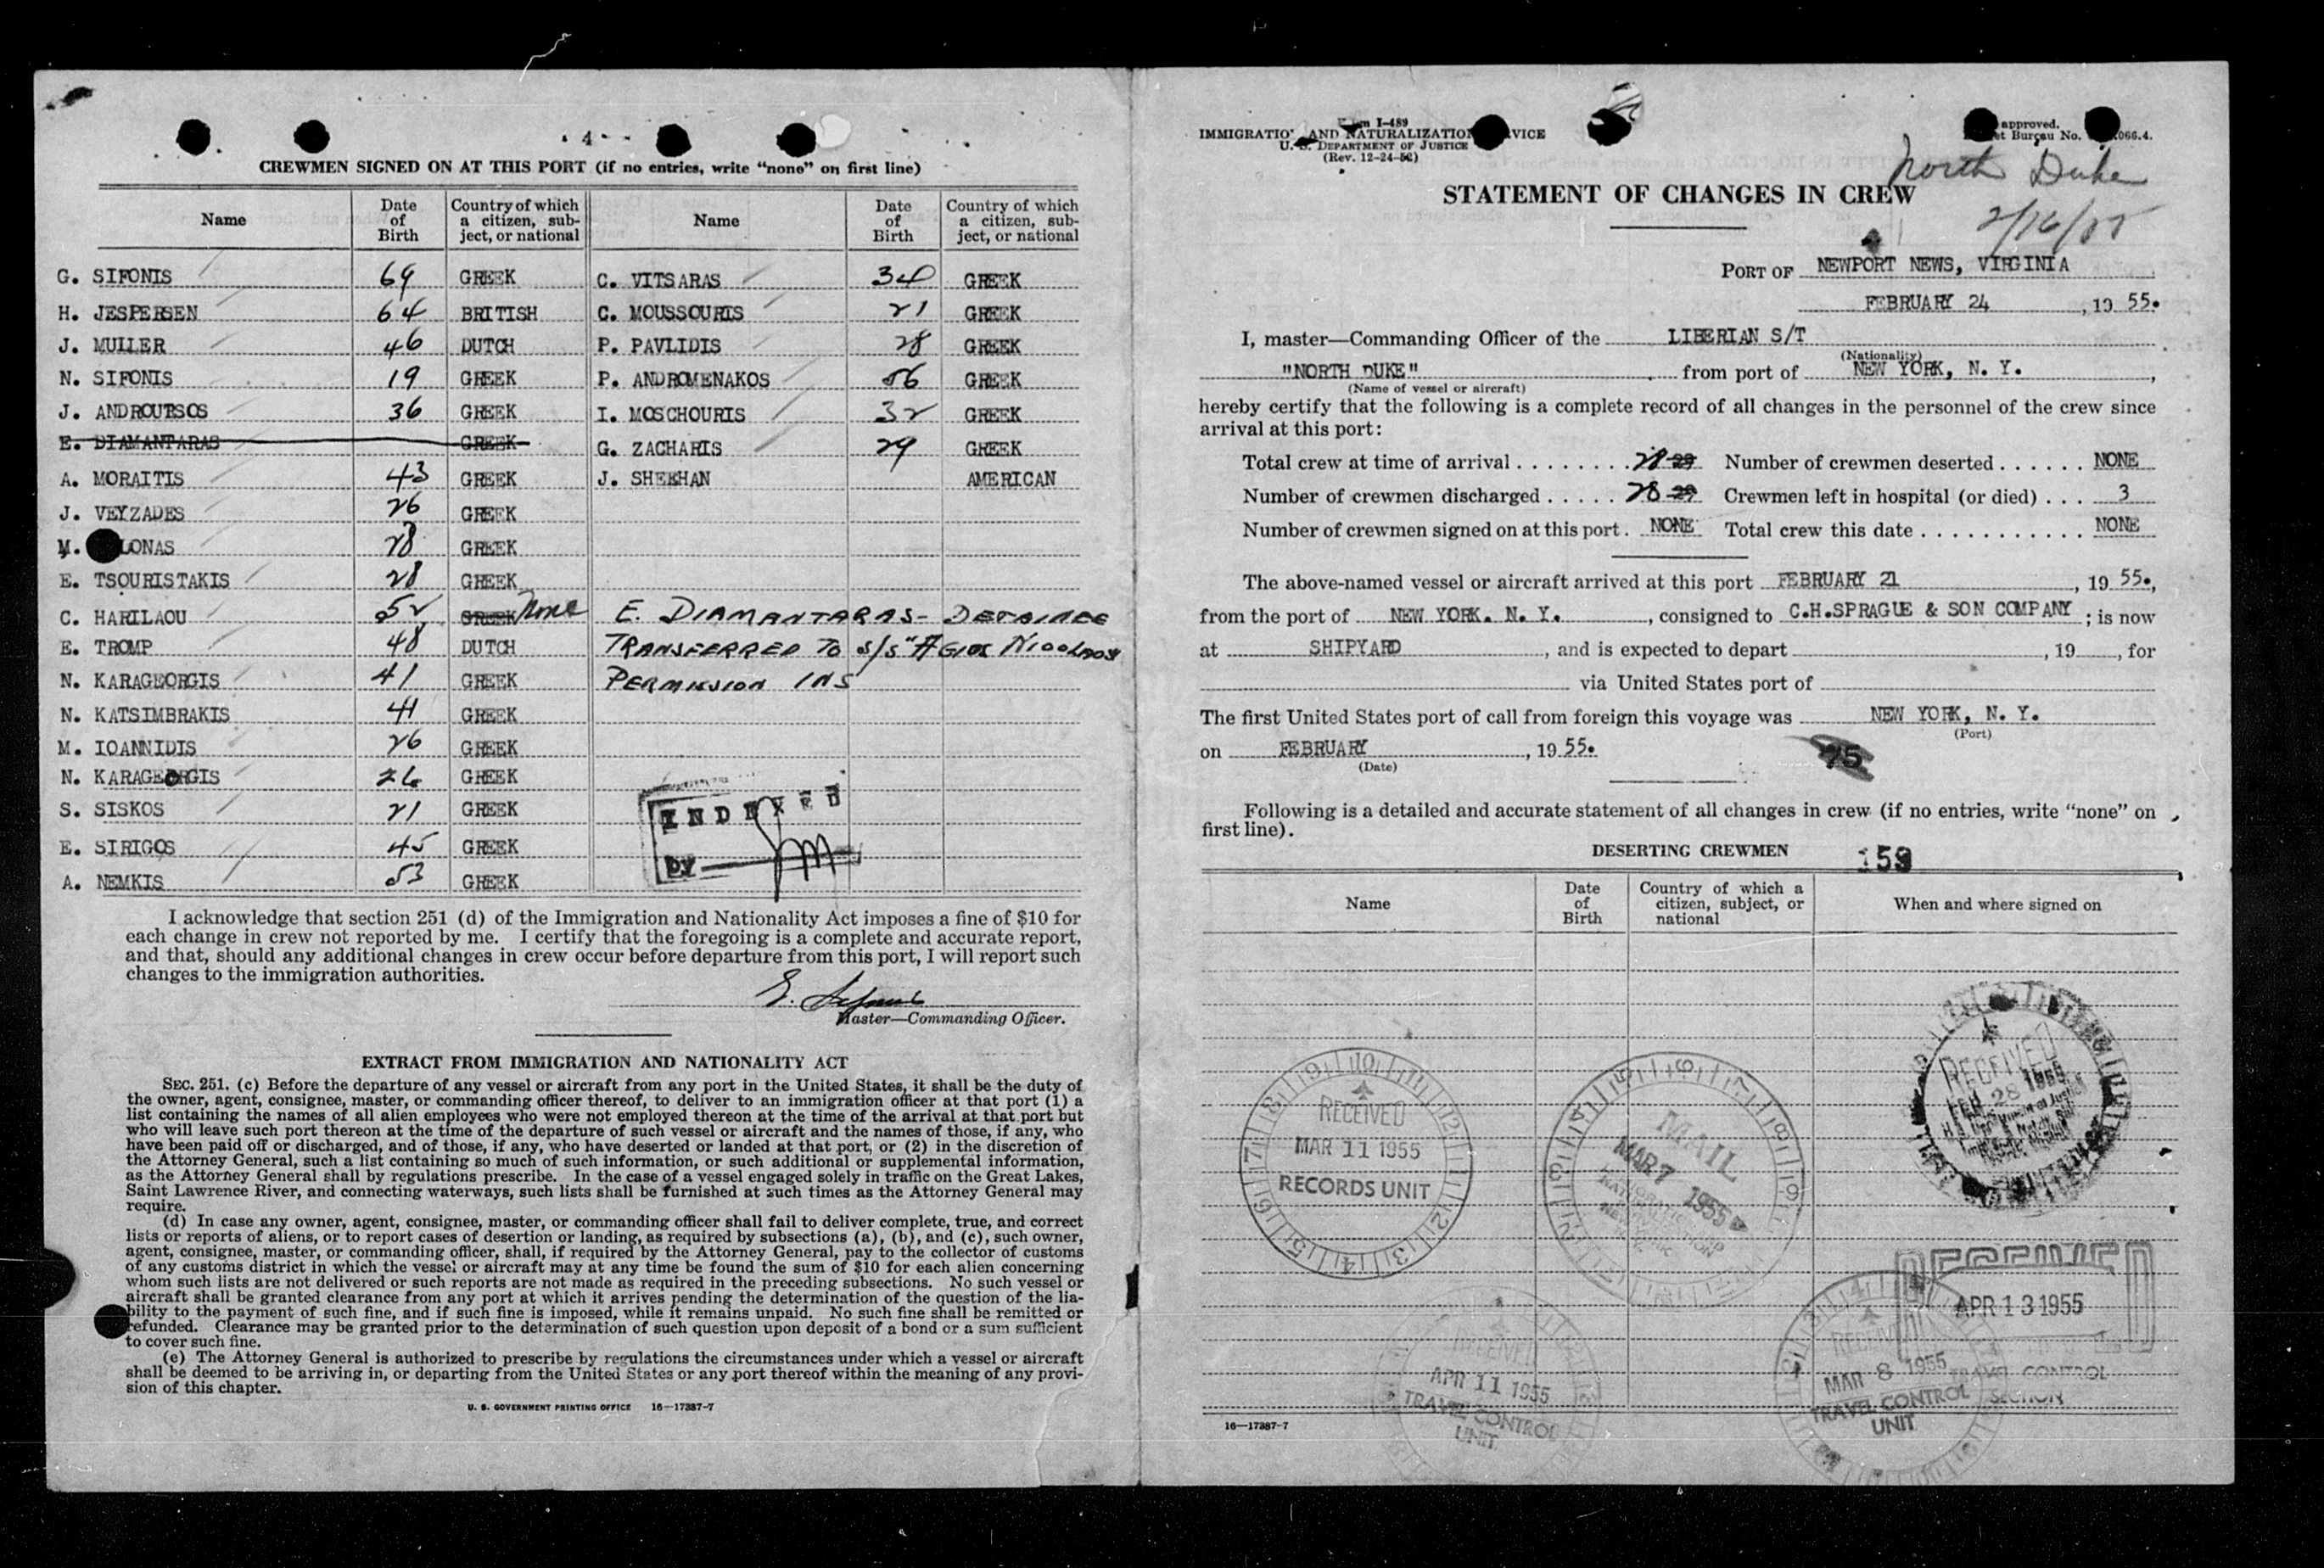 - 4 -
CREWMEN SIGNED ON AT THIS PORT (if no entries, write “none” on first line)
Name Date of Birth Country of which a citizen, subject, or national Name Date of Birth Country of which a citizen, subject, or national
G. SIFONIS 69 GREEK C. VITSARAS 34 GREEK
H. JESPERSEN 64 BRITISH C. MOUSSOURIS 21 GREEK
J. MULLER 46 DUTCH P. PAVLIDIS 28 GREEK
N. SIFONIS 19 GREEK P. ANDROMENAKOS 56 GREEK
J. ANDROUTSOS 36 GREEK I. MOSCHOURIS 32 GREEK
E. DIAMANTARAS GREEK G. ZACHARIS 29 GREEK
A. MORAITIS 43 GREEK J. SHEEHAN AMERICAN
J. VEYZADES 26 GREEK
M. LONAS 28 GREEK
E. TSOURISTAKIS 28 GREEK
C. HARILAOU 52 GREEK None E. DIAMANTARAS - DETAINEE
E. TROMP 48 DUTCH TRANSFERRED TO S/S "AGIOS NICOLAOS
N. KARAGEORGIS 41 GREEK PERMISSION INS
N. KATSIMBRAKIS 41 GREEK
M. IOANNIDIS 26 GREEK
N. KARAGEORGIS 26 GREEK
S. SISKOS 21 GREEK INDEXED
E. SIRIGOS 45 GREEK by
A. NEMKIS 53 GREEK
I acknowledge that section 251 (d) of the Immigration and Nationality Act imposes a fine of $10 for
each change in crew not reported by me. I certify that the foregoing is a complete and accurate report,
and that, should any additional changes in crew occur before departure from this port, I will report such
changes to the immigration authorities.
Master—Commanding Officer.
EXTRACT FROM IMMIGRATION AND NATIONALITY ACT
SEC. 251. (c) Before the departure of any vessel or aircraft from any port in the United States, it shall be the duty of
the owner, agent, consignee, master, or commanding officer thereof, to deliver to an immigration officer at that port (1) a
list containing the names of all alien employees who were not employed thereon at the time of the arrival at that port but
who will leave such port thereon at the time of the departure of such vessel or aircraft and the names of those, if any, who
have been paid off or discharged, and of those, if any, who have deserted or landed at that port, or (2) in the discretion of
the Attorney General, such a list containing so much of such information, or such additional or supplemental information,
as the Attorney General shall by regulations prescribe. In the case of a vessel engaged solely in traffic on the Great Lakes,
Saint Lawrence River, and connecting waterways, such lists shall be furnished at such times as the Attorney General may
require.
(d) In case any owner, agent, consignee, master, or commanding officer shall fail to deliver complete, true, and correct
lists or reports of aliens, or to report cases of desertion or landing, as required by subsections (a), (b), and (c), such owner,
agent, consignee, master, or commanding officer, shall, if required by the Attorney General, pay to the collector of customs
of any customs district in which the vessel or aircraft may at any time be found the sum of $10 for each alien concerning
whom such lists are not delivered or such reports are not made as required in the preceding subsections. No such vessel or
aircraft shall be granted clearance from any port at which it arrives pending the determination of the question of the lia-
bility to the payment of such fine, and if such fine is imposed, while it remains unpaid. No such fine shall be remitted or
refunded. Clearance may be granted prior to the determination of such question upon deposit of a bond or a sum sufficient
to cover such fine.
(e) The Attorney General is authorized to prescribe by regulations the circumstances under which a vessel or aircraft
shall be deemed to be arriving in, or departing from the United States or any port thereof within the meaning of any provi-
sion of this chapter.
U. S. GOVERNMENT PRINTING OFFICE 16—17387-7
I-489
IMMIGRATION AND NATURALIZATION SERVICE
U. S. DEPARTMENT OF JUSTICE
(Rev. 12-24-52)
approved.
Bureau No. 066.4.
North Duke
2/16/55
STATEMENT OF CHANGES IN CREW
PORT OF NEWPORT NEWS, VIRGINIA
FEBRUARY 24, 1955.
I, master—Commanding Officer of the LIBERIAN S/T
(Nationality)
"NORTH DUKE" from port of NEW YORK, N. Y.,
(Name of vessel or aircraft)
hereby certify that the following is a complete record of all changes in the personnel of the crew since
arrival at this port:
Total crew at time of arrival . . . . . . . . 28 29 Number of crewmen deserted . . . . . . NONE
Number of crewmen discharged . . . . . 28 29 Crewmen left in hospital (or died) . . . 3
Number of crewmen signed on at this port . NONE Total crew this date . . . . . . . . . . . NONE
The above-named vessel or aircraft arrived at this port FEBRUARY 21, 1955.,
from the port of NEW YORK. N. Y., consigned to C.H.SPRAGUE & SON COMPANY; is now
at SHIPYARD, and is expected to depart , 19 , for
via United States port of
The first United States port of call from foreign this voyage was NEW YORK, N. Y.
(Port)
on FEBRUARY, 1955.
(Date)
75
Following is a detailed and accurate statement of all changes in crew (if no entries, write “none” on
first line).
DESERTING CREWMEN 159
Name Date of Birth Country of which a citizen, subject, or national When and where signed on
RECEIVED
FEB 28 1955
RECEIVED
MAR 11 1955
RECORDS UNIT
MAIL
MAR 7 1955
RECEIVED
APR 11 1955
TRAVEL CONTROL
UNIT
RECEIVED
MAR 8 1955
TRAVEL CONTROL
UNIT
RECEIVED
APR 13 1955
TRAVEL CONTROL
SECTION
16—17387-7